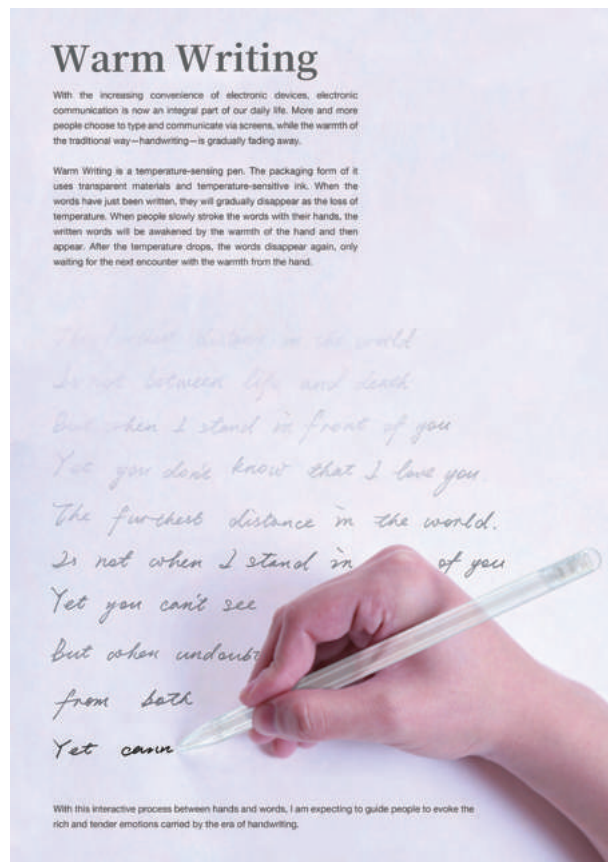 Warm Writing
With the increasing convenience of electronic devices, electronic
communication is now an integral part of our daily life. More and more
people choose to type and communicate via screens, while the warmth of
the traditional way—handwriting—is gradually fading away.
Warm Writing is a temperature-sensing pen. The packaging form of it
uses transparent materials and temperature-sensitive ink. When the
words have just been written, they will gradually disappear as the loss of
temperature. When people slowly stroke the words with their hands, the
written words will be awakened by the warmth of the hand and then
appear. After the temperature drops, the words disappear again, only
waiting for the next encounter with the warmth from the hand.
The furthest distance in the world
Is not between life and death
But when I stand in front of you
Yet you don't know that I love you.
The furthest distance in the world.
Is not when I stand in of you
Yet you can't see
But when undoubt
from both
Yet cann
With this interactive process between hands and words, I am expecting to guide people to evoke the
rich and tender emotions carried by the era of handwriting.